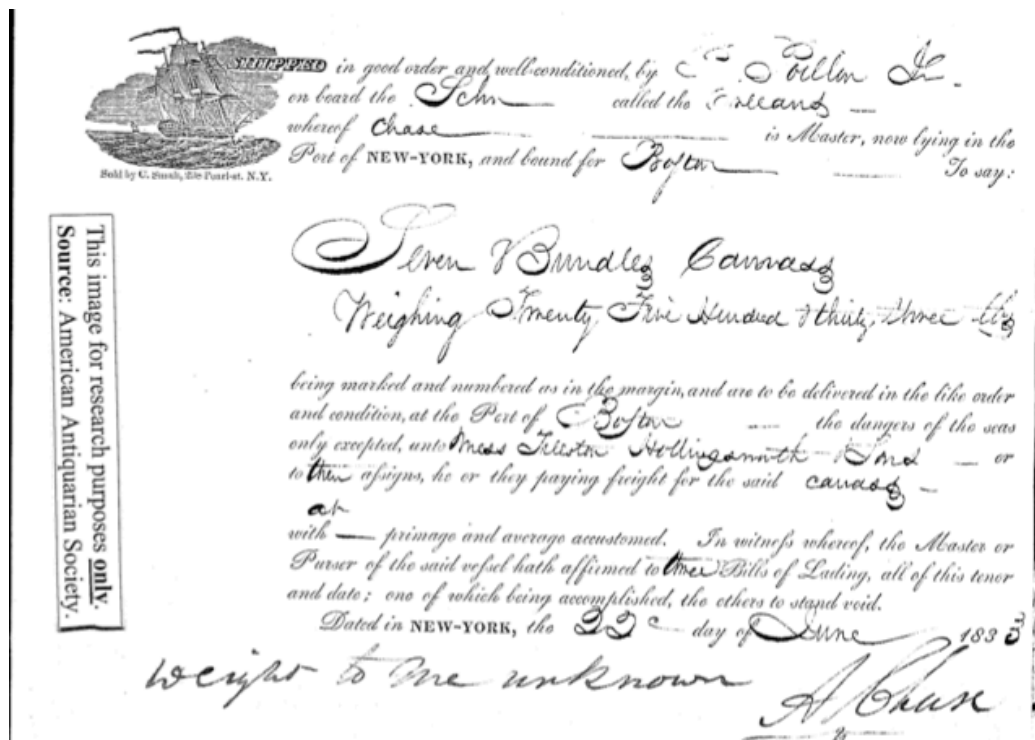 SHIPPED in good order and well-conditioned, by Poillon Jr
on board the Schr called the
whereof Chase is Master, now lying in the
Port of NEW-YORK, and bound for Boston To say:
Sold by C. Smith, Pearl-st. N.Y.
Seven Bundles Canvass
Weighing Twenty Five Hundred & thirty three lbs
being marked and numbered as in the margin, and are to be delivered in the like order
and condition, at the Port of Boston the dangers of the seas
only excepted, unto Mess Tileston Hollingsworth or
to their assigns, he or they paying freight for the said canvass
at
with — primage and average accustomed. In witness whereof, the Master or
Purser of the said vessel hath affirmed to three Bills of Lading, all of this tenor
and date; one of which being accomplished, the others to stand void.
Dated in NEW-YORK, the 22d day of June 183
weight to me unknown
A Chase
This image for research purposes only.
Source: American Antiquarian Society.